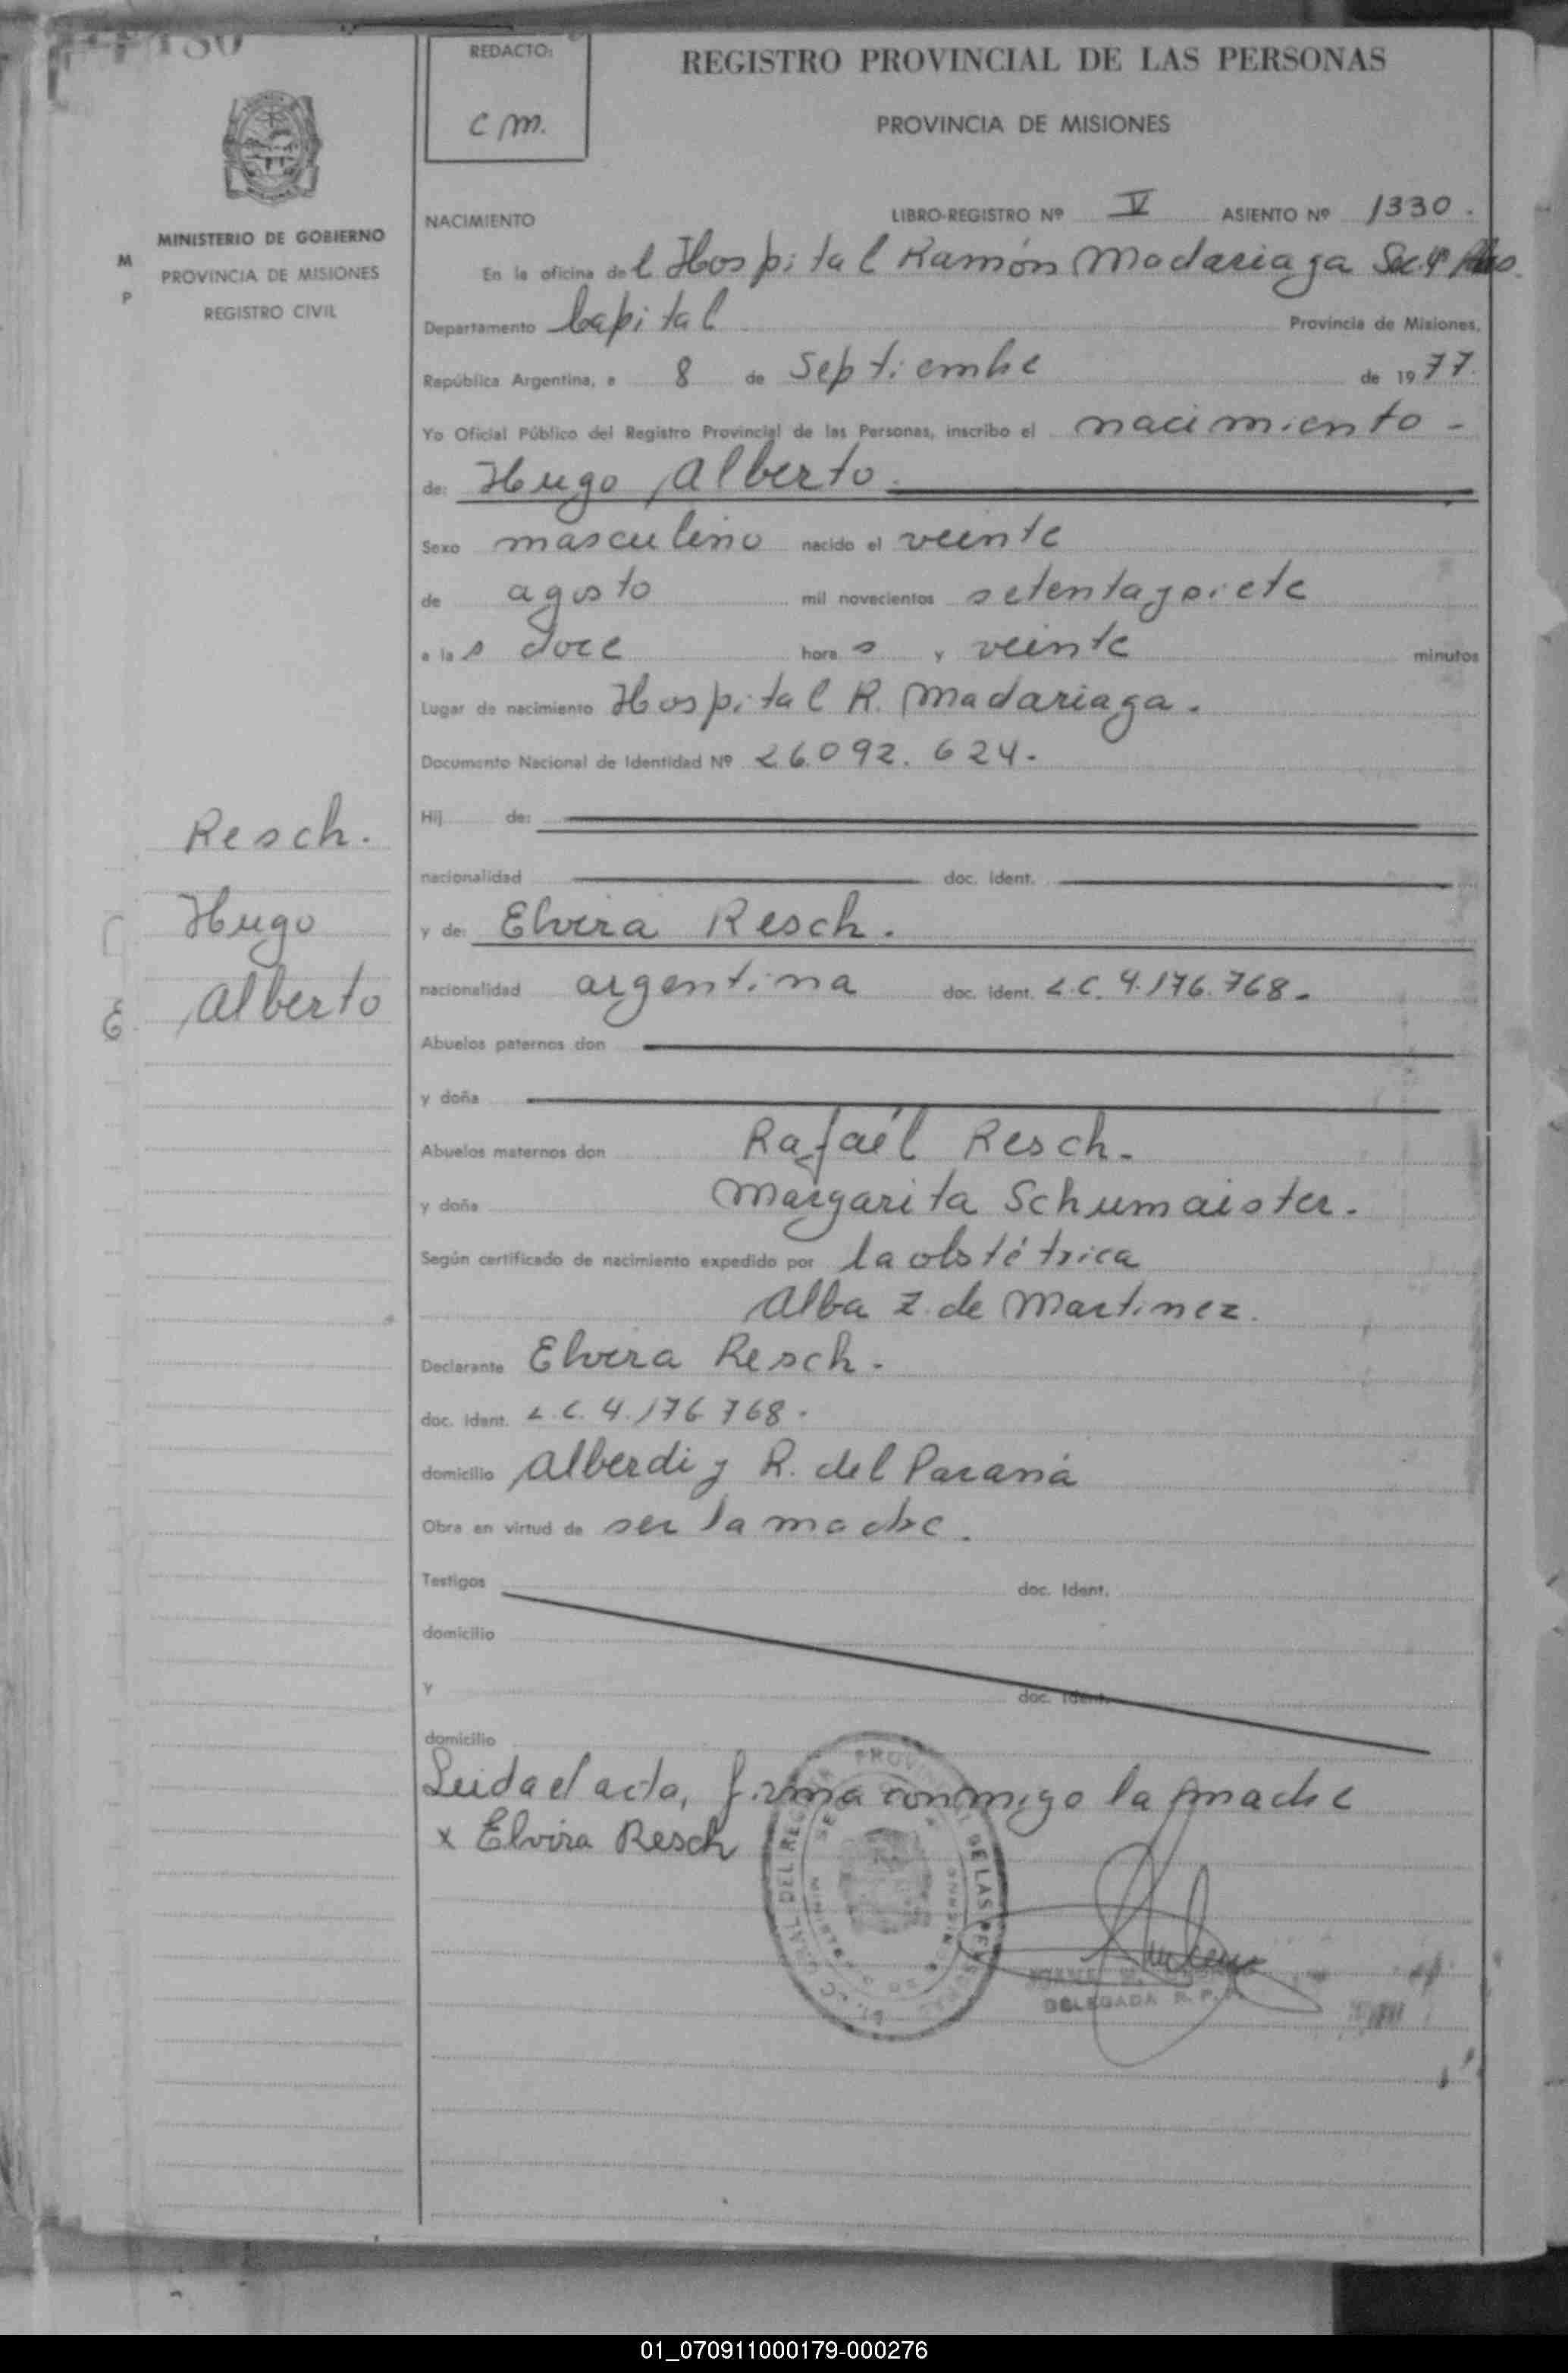 REDACTO:
C M.
REGISTRO PROVINCIAL DE LAS PERSONAS
PROVINCIA DE MISIONES
MINISTERIO DE GOBIERNO
PROVINCIA DE MISIONES
REGISTRO CIVIL
M
P
NACIMIENTO LIBRO-REGISTRO Nº V ASIENTO Nº 1330.
En la oficina del Hospital Ramón Madariaga Sec. 4ª
Departamento Capital Provincia de Misiones,
República Argentina, a 8 de Septiembre de 1977.
Yo Oficial Público del Registro Provincial de las Personas, inscribo el nacimiento -
de: Hugo Alberto.
Sexo masculino nacido el veinte
de agosto mil novecientos setentaysiete
a las doce horas y veinte minutos
Lugar de nacimiento Hospital R. Madariaga.
Documento Nacional de Identidad Nº 26.092.624-
Hij de:
nacionalidad doc. ident.
y de: Elvira Resch.
nacionalidad argentina doc. ident. L.C. 4.176.768-
Abuelos paternos don
y doña
Abuelos maternos don Rafaél Resch-
y doña Margarita Schumaister.
Según certificado de nacimiento expedido por la obstétrica
Alba Z. de Martinez.
Declarante Elvira Resch.
doc. ident. L.C. 4.176.768.
domicilio Alberdi y R. del Paraná
Obra en virtud de ser la madre.
Testigos doc. ident.
domicilio
y doc. ident.
domicilio
Leida el acta, firma conmigo la madre
x Elvira Resch
DELEGADA R. P.
Resch.
Hugo
Alberto
01_070911000179-000276